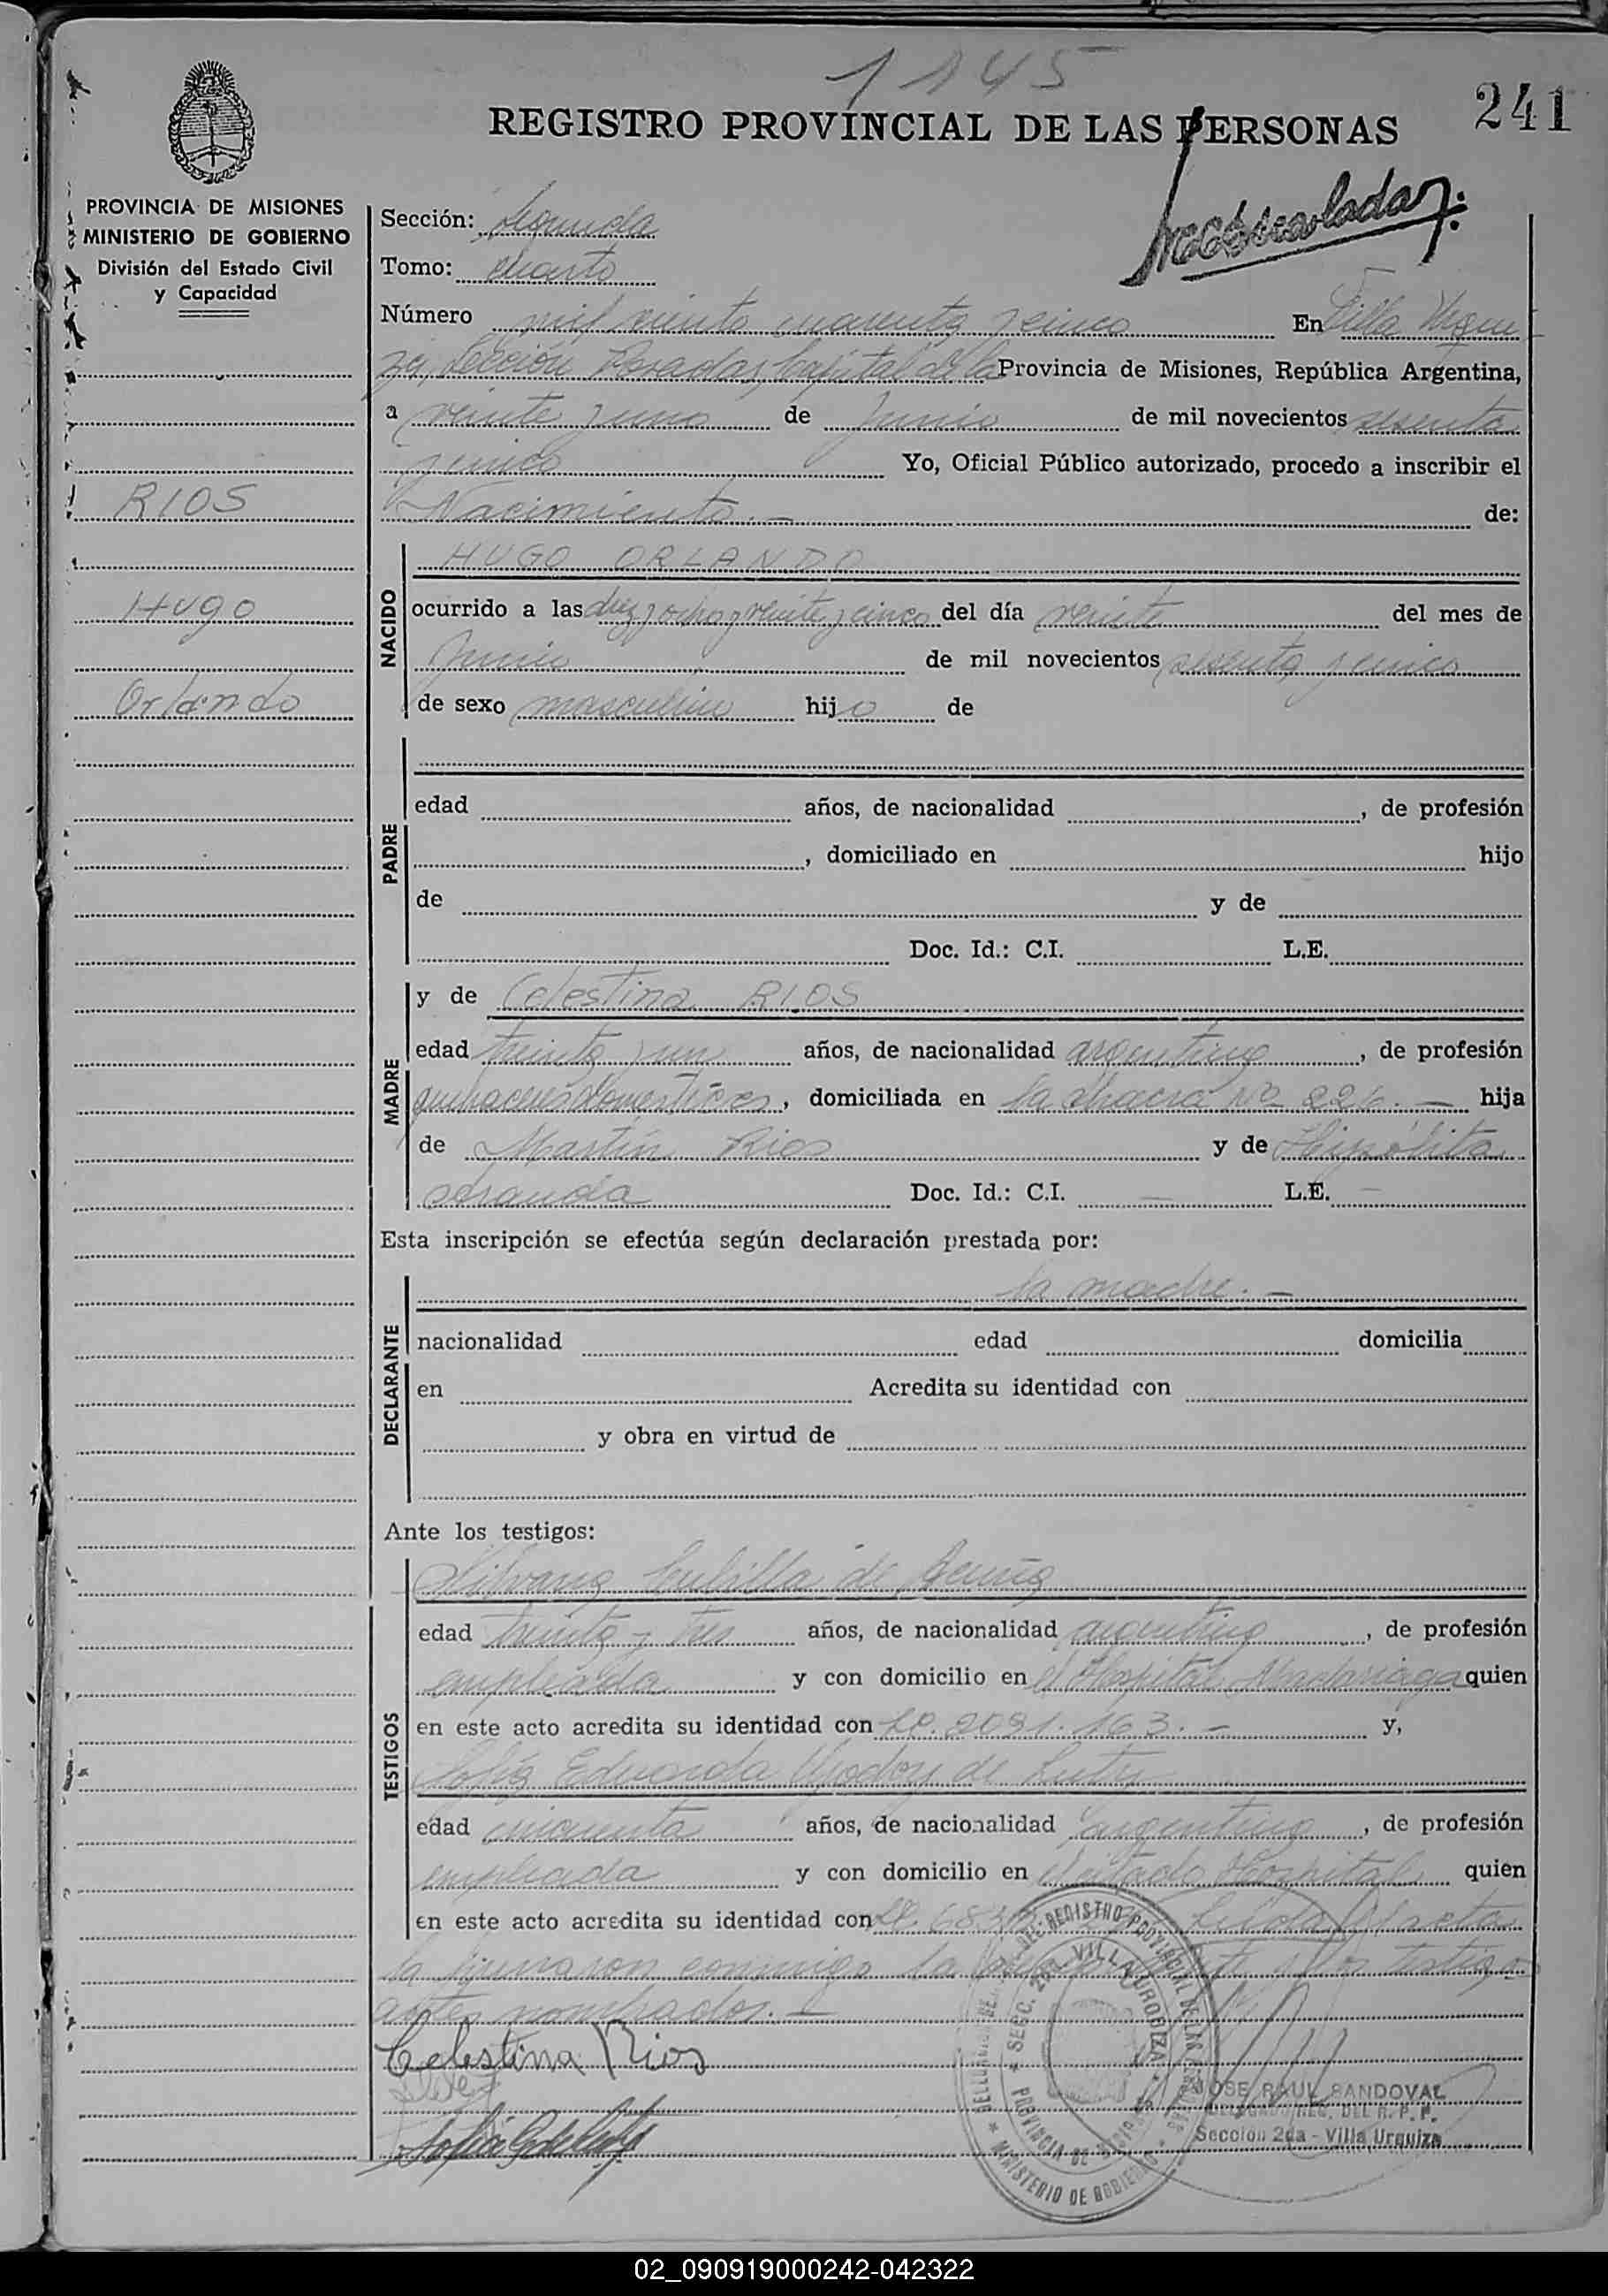 1145
241
REGISTRO PROVINCIAL DE LAS PERSONAS
PROVINCIA DE MISIONES
MINISTERIO DE GOBIERNO
División del Estado Civil
y Capacidad
Sección: Segunda
Tomo: Cuarto
Número mil ciento cuarenta y cinco En Villa Urqui
za, Sección Posadas, Capital de la Provincia de Misiones, República Argentina,
a veinte y uno de Junio de mil novecientos sesenta
y cinco Yo, Oficial Público autorizado, procedo a inscribir el
RIOS
Nacimiento.- de:
HUGO ORLANDO
NACIDO
Hugo
ocurrido a las diez y ocho y veinte y cinco del día veinte del mes de
Junio de mil novecientos sesenta y cinco
Orlando
de sexo masculino hijo de
PADRE
edad años, de nacionalidad , de profesión
, domiciliado en hijo
de y de
Doc. Id.: C.I. L.E.
MADRE
y de Celestina RIOS
edad treinta y un años, de nacionalidad argentina, de profesión
quehaceres domésticos, domiciliada en la chacra Nº 226.- hija
de Martín Rios y de Hipólita
Aranda Doc. Id.: C.I. — L.E. —
Esta inscripción se efectúa según declaración prestada por:
DECLARANTE
la madre.-
nacionalidad edad domicilia
en Acredita su identidad con
y obra en virtud de
Ante los testigos:
TESTIGOS
Silvana Cubilla de Acuña
edad treinta y tres años, de nacionalidad argentina, de profesión
empleada y con domicilio en el Hospital Madariaga quien
en este acto acredita su identidad con 2091.163.- y,
Sofía Eduarda Godoy de
edad cincuenta años, de nacionalidad argentina, de profesión
empleada y con domicilio en el citado Hospital quien
en este acto acredita su identidad con Leída el acta
la firmaron conmigo la y los testigos
antes nombrados.-
Celestina Rios
REGISTRO PROVINCIAL DE LAS PERSONAS
SECC. 2da. VILLA URQUIZA
PROVINCIA DE MISIONES
MINISTERIO DE GOBIERNO
JOSE RAUL SANDOVAL
DELEGADO REG. DEL R. P. P.
Sección 2da - Villa Urquiza
02_090919000242-042322